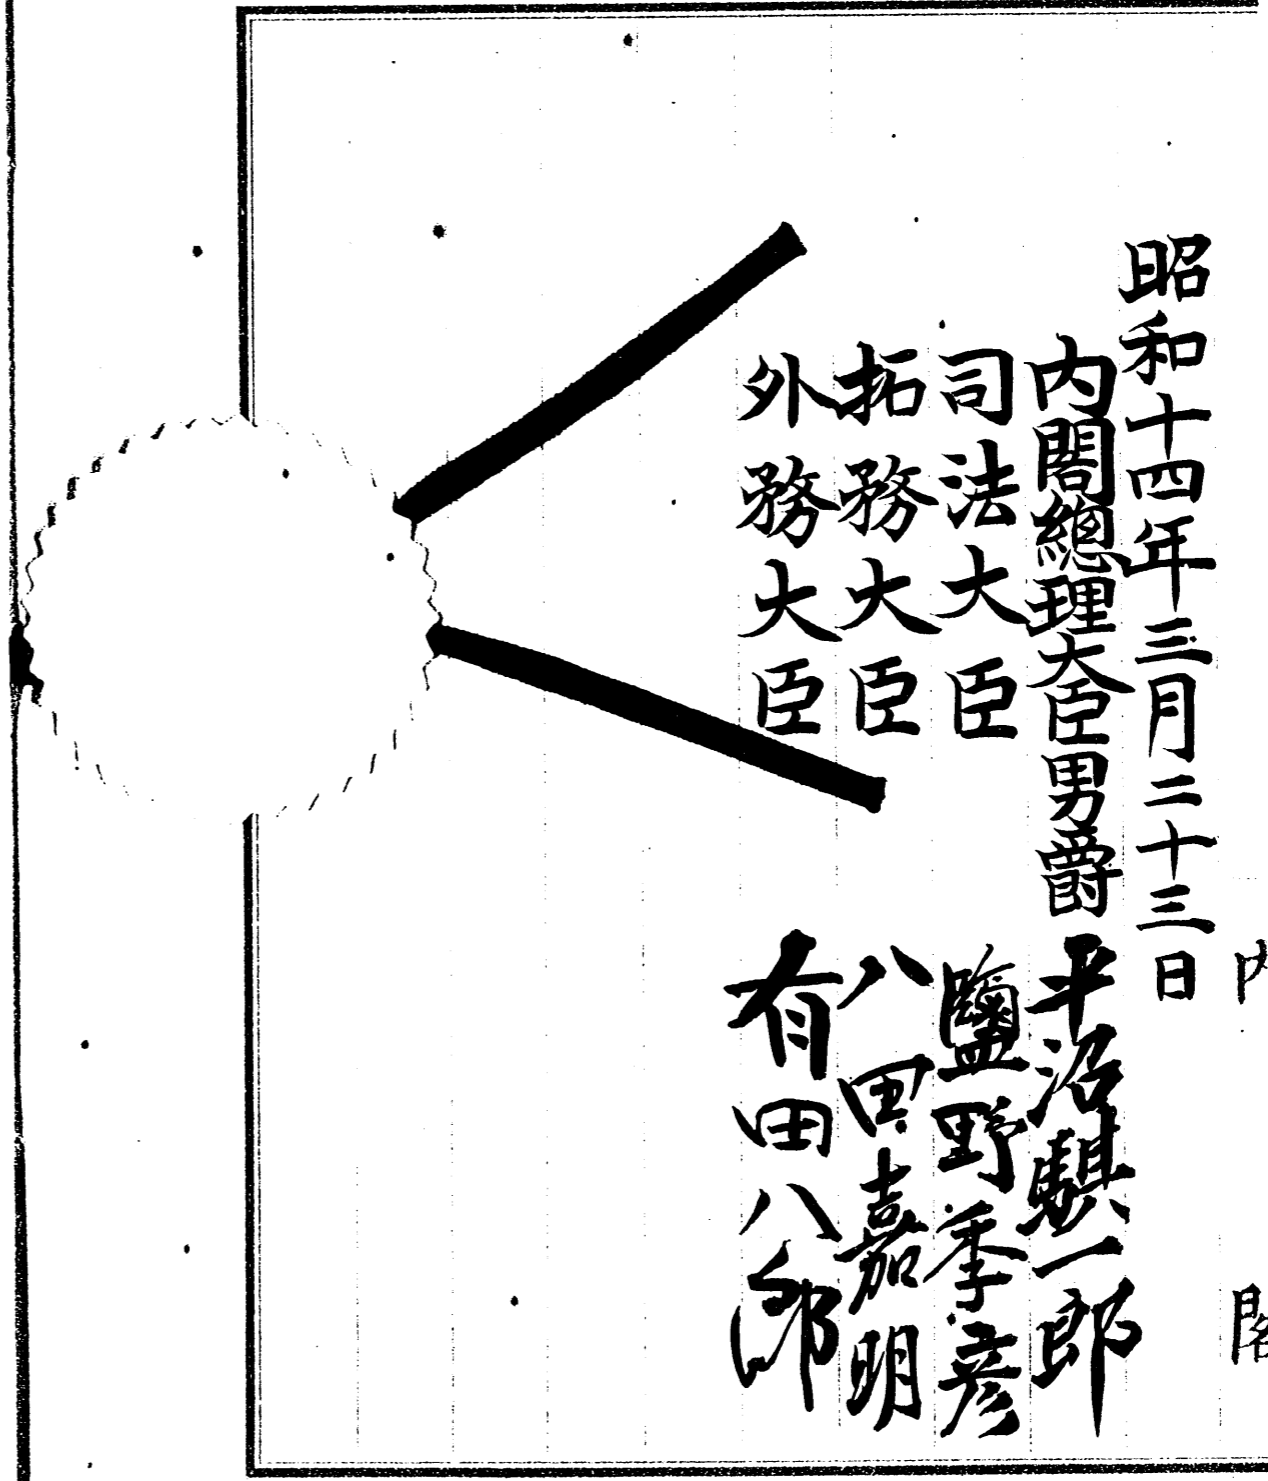 昭和十四年三月二十三日
内閣總理大臣男爵 平沼騏一郎
司法大臣 鹽野季彦
拓務大臣 八田嘉明
外務大臣 有田八郎